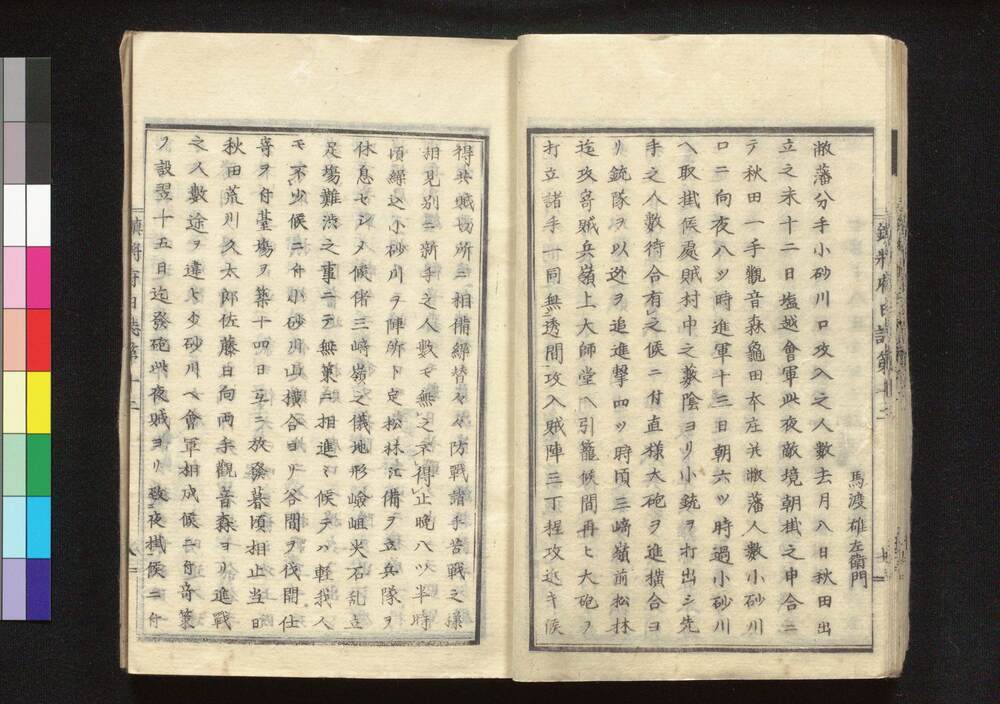 馬渡雄左衛門
敝藩分手小砂川口攻入之人數去月八日秋田出
立之末十二日塩越會軍此夜敵境朝掛之申合ニ
テ秋田一手觀音森龜田本庄共敝藩人數小砂川
口ニ向夜八ッ時進軍十三日朝六ッ時過小砂川
ヘ取掛候處賊村中之藪陰ヨリ小銃ヲ打出シ先
手之人數待合有之候ニ付直様大砲ヲ進橫合ヨ
リ銃隊ヲ以逊ヲ追進擊四ッ時頃三﨑嶺前松林
迄攻寄賊兵嶺上大師堂ヘ引籠候間再ヒ大砲ヲ
打立諸手一同無透間攻入賊陣三丁程攻近キ候
得共賊場所ニ相備繰替々々防戰諸手苦戰之樣
相見別ニ新手之人數モ無之不得止晩八ツ半時
頃繰込小砂川ヲ陣所ト定松林江備ヲ立兵隊ヲ
休息セシメ候偖三﨑嶺之儀地形嶮岨火石乱立
足場難渋之事ニテ無策ニ相進ミ候テハ輕我人
モ不少候ニ付小砂川山攘合ヨリ谷間ヲ伐開仕
寄ヲ付臺場ヲ築十四日互ニ放發暮頃相止当日
秋田荒川久太郎佐藤日向両手觀音森ヨリ進戰
之人數途ヲ違ヒ小砂川ヘ會軍相成候ニ付竒策
ヲ設翌十五日迄發砲此夜賊ヨリ敢夜掛候ニ付
鎮将府日誌第十二